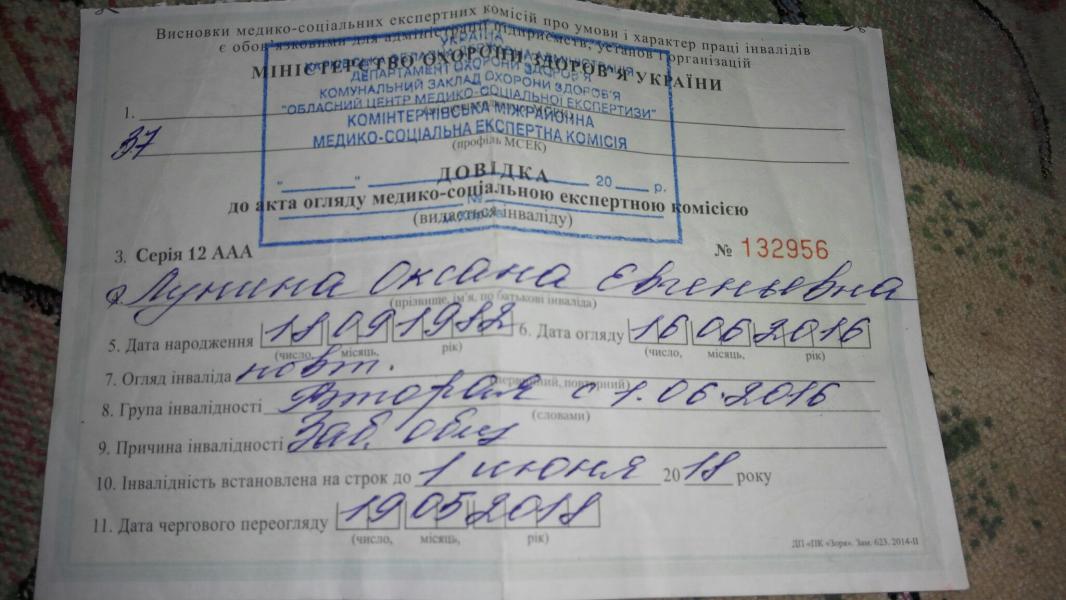 Висновки медико-соціальних експертних комісій про умови і характер праці інвалідів
є обов'язковими для адміністрації підприємств, установ і організацій
УКРАЇНА
МІНІСТЕРСТВО ОХОРОНИ ЗДОРОВ'Я УКРАЇНИ
ДЕПАРТАМЕНТ ОХОРОНИ ЗДОРОВ'Я
КОМУНАЛЬНИЙ ЗАКЛАД ОХОРОНИ ЗДОРОВ'Я
"ОБЛАСНИЙ ЦЕНТР МЕДИКО-СОЦІАЛЬНОЇ ЕКСПЕРТИЗИ"
1.
КОМІНТЕРНІВСЬКА МІЖРАЙОННА
МЕДИКО-СОЦІАЛЬНА ЕКСПЕРТНА КОМІСІЯ
37
(профіль МСЕК)
ДОВІДКА
" " 20 р.
до акта огляду медико-соціальною експертною комісією
№
(видається інваліду)
3. Серія 12 ААА № 132956
Лунина Оксана Евгеньевна
(прізвище, ім'я, по батькові інваліда)
5. Дата народження 18 09 1982 6. Дата огляду 16 06 2016
(число, місяць, рік) (число, місяць, рік)
7. Огляд інваліда повт.
(первинний, повторний)
8. Група інвалідності Вторая с 1.06.2016
(словами)
9. Причина інвалідності Заб. общ
10. Інвалідність встановлена на строк до 1 июня 2018 року
11. Дата чергового переогляду 19 05 2018
(число, місяць, рік)
ДП «ПК «Зоря». Зам. 623. 2014-ІІ